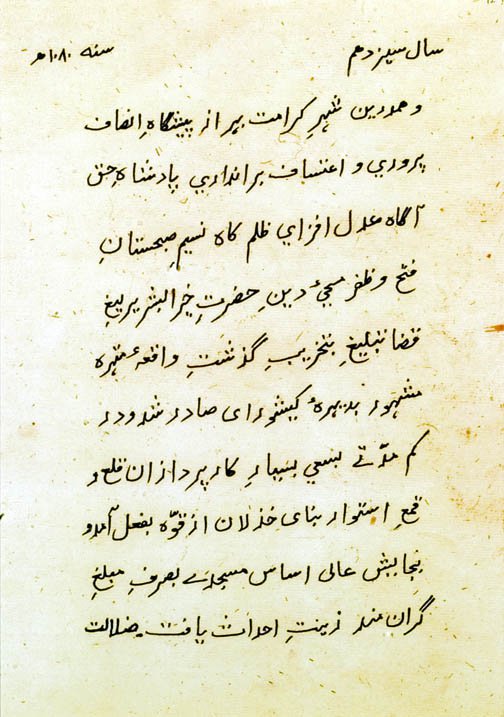 سال سیزدهم سنه ۱۰۸۰هـ
و همدرین شهرِ کرامت بهر از پیشگاهِ انصاف
پروري و اعتساف براندازي پادشاهِ حق
آگاه عدل افزاي ظلم کاه نسیمِ صبحستانِ
فتح و ظفر محئ دینِ حضرتِ خیر البشر یرلیغِ
قضا تبلیغ بتخریبِ گذشت واقعهٔ متهره
مشهور بدیرهٔ کیشورای صادر شد و در
کم مدّتے بسعي بسیارِ کارپردازان قلع و
قمعِ استوار بنای خذلان از قوّه بفعل آمد و
بجایش عالی اساس مسجدے بصرفِ مبلغِ
گران مند زینتِ احداث یافت ضلالت